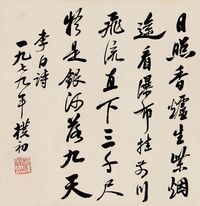 日照香爐生紫烟
遥看瀑布挂前川
飛流直下三千尺
疑是銀河落九天
李白诗
一九七九年樸初